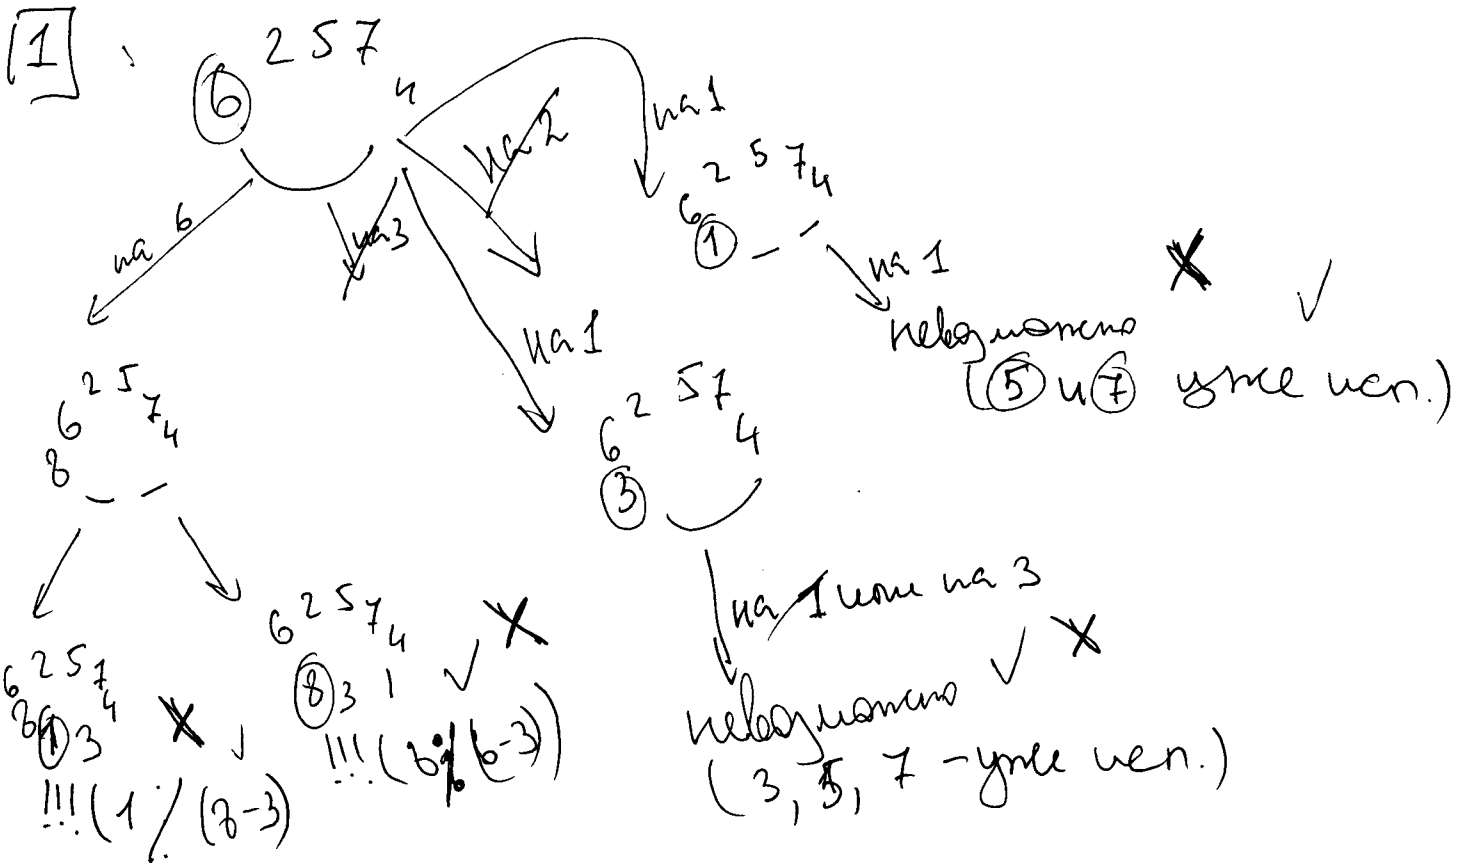 1
2 5 7
6 4
на 6
на 3
на 2
на 1
на 1
6 2 5 7 4
1 _ _
на 1
невозможно
(5 и 7 уже исп.)
6 2 5 7 4
8 _ _
6 2 5 7 4
3
на 1 или на 3
невозможно
(3, 5, 7 - уже исп.)
6 2 5 7 4
8 1 3
!!! (1 ⁒ (8-3))
6 2 5 7 4
8 3 1
!!! (6 ⁒ (6-3))